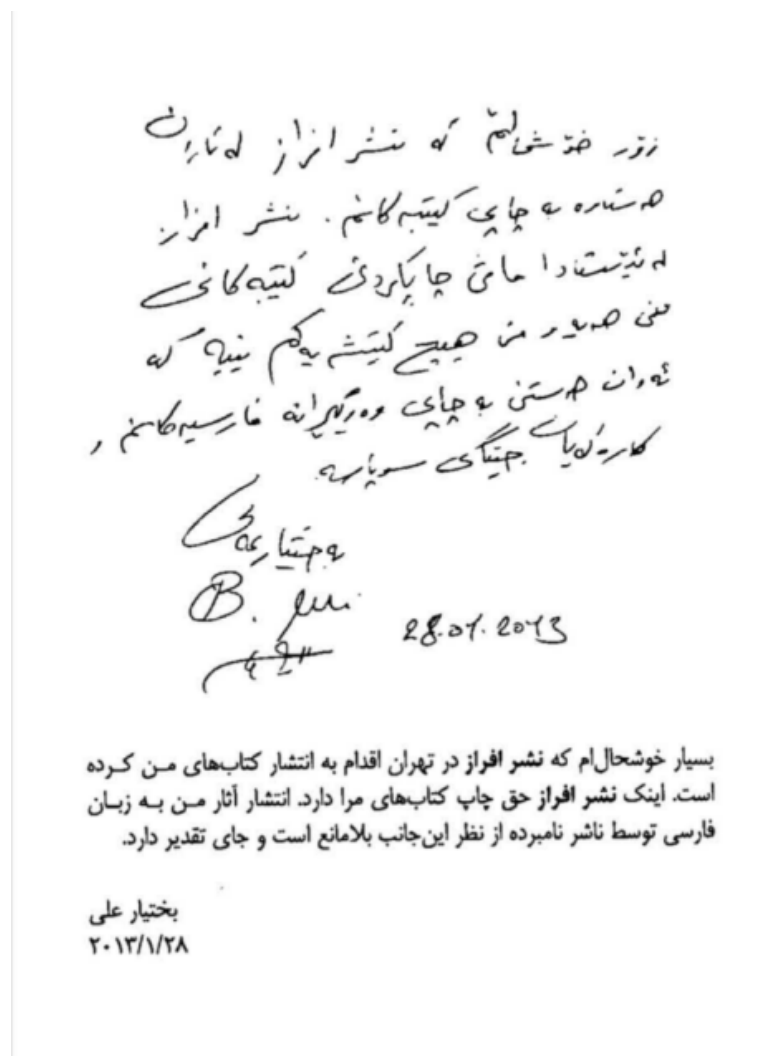 زۆر خۆشحاڵم که نشر افراز له تاران
هەستاوه به چاپی کتێبەکانم. نشر افراز
له ئێستادا مافی چاپکردنی کتێبەکانی
منی هەیه و من هیچ کێشەیەکم نییه که
ئەوان هەستن به چاپی وەرگێڕانه فارسیەکانم و
کارەکەیان جێگای سوپاسه.
بەختیار عەلی
B. Ali
28.01.2013
بسیار خوشحال‌ام که نشر افراز در تهران اقدام به انتشار کتاب‌های مـن کـرده
است. اینک نشر افراز حق چاپ کتاب‌های مرا دارد. انتشار آثار مـن بـه زبـان
فارسی توسط ناشر نامبرده از نظر این‌جانب بلامانع است و جای تقدیر دارد.
بختیار علی
۲۰۱۳/۱/۲۸